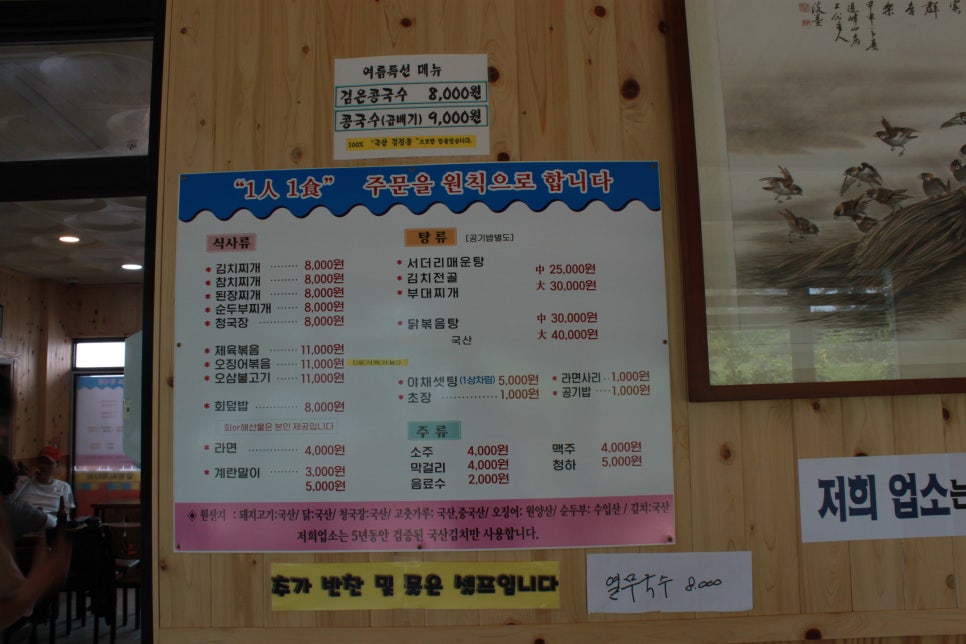 여름특선 메뉴
검은콩국수 8,000원
콩국수(곱배기) 9,000원
100% "국산 검정콩"으로만 만들었습니다.
"1人 1食" 주문을 원칙으로 합니다
식사류
* 김치찌개 ········ 8,000원
* 참치찌개 ········ 8,000원
* 된장찌개 ········ 8,000원
* 순두부찌개 ······ 8,000원
* 청국장 ········ 8,000원
* 제육볶음 ······· 11,000원
* 오징어볶음 ····· 11,000원
* 오삼불고기 ····· 11,000원
* 회덮밥 ········ 8,000원
회or해산물은 본인 제공입니다
* 라면 ········ 4,000원
* 계란말이 ······ 3,000원
5,000원
탕류 [공기밥별도]
* 서더리매운탕
* 김치전골
* 부대찌개
中 25,000원
大 30,000원
* 닭볶음탕
국산
中 30,000원
大 40,000원
* 야채셋팅(1상차림) 5,000원
* 초장 ················ 1,000원
* 라면사리 ··1,000원
* 공기밥 ····1,000원
주류
소주 4,000원
막걸리 4,000원
음료수 2,000원
맥주 4,000원
청하 5,000원
◈ 원산지 : 돼지고기:국산/ 닭:국산/ 청국장:국산/ 고춧가루: 국산,중국산/ 오징어: 원양산/ 순두부: 수입산 / 김치:국산
저희업소는 5년동안 검증된 국산김치만 사용합니다.
추가 반찬 및 물은 셀프입니다
열무국수 8.000
저희 업소는